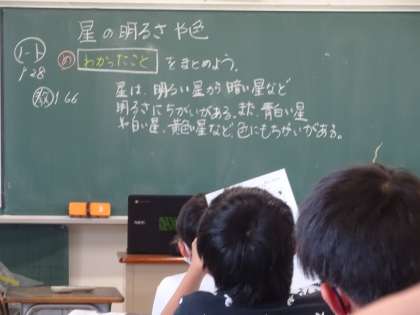 星の明るさや色
ノート
P28
め わかったこと をまとめよう。
教 P166
星は、明るい星から暗い星など
明るさにちがいがある。また、青白い星
や白い星、黄色い星など、色にもちがいがある。